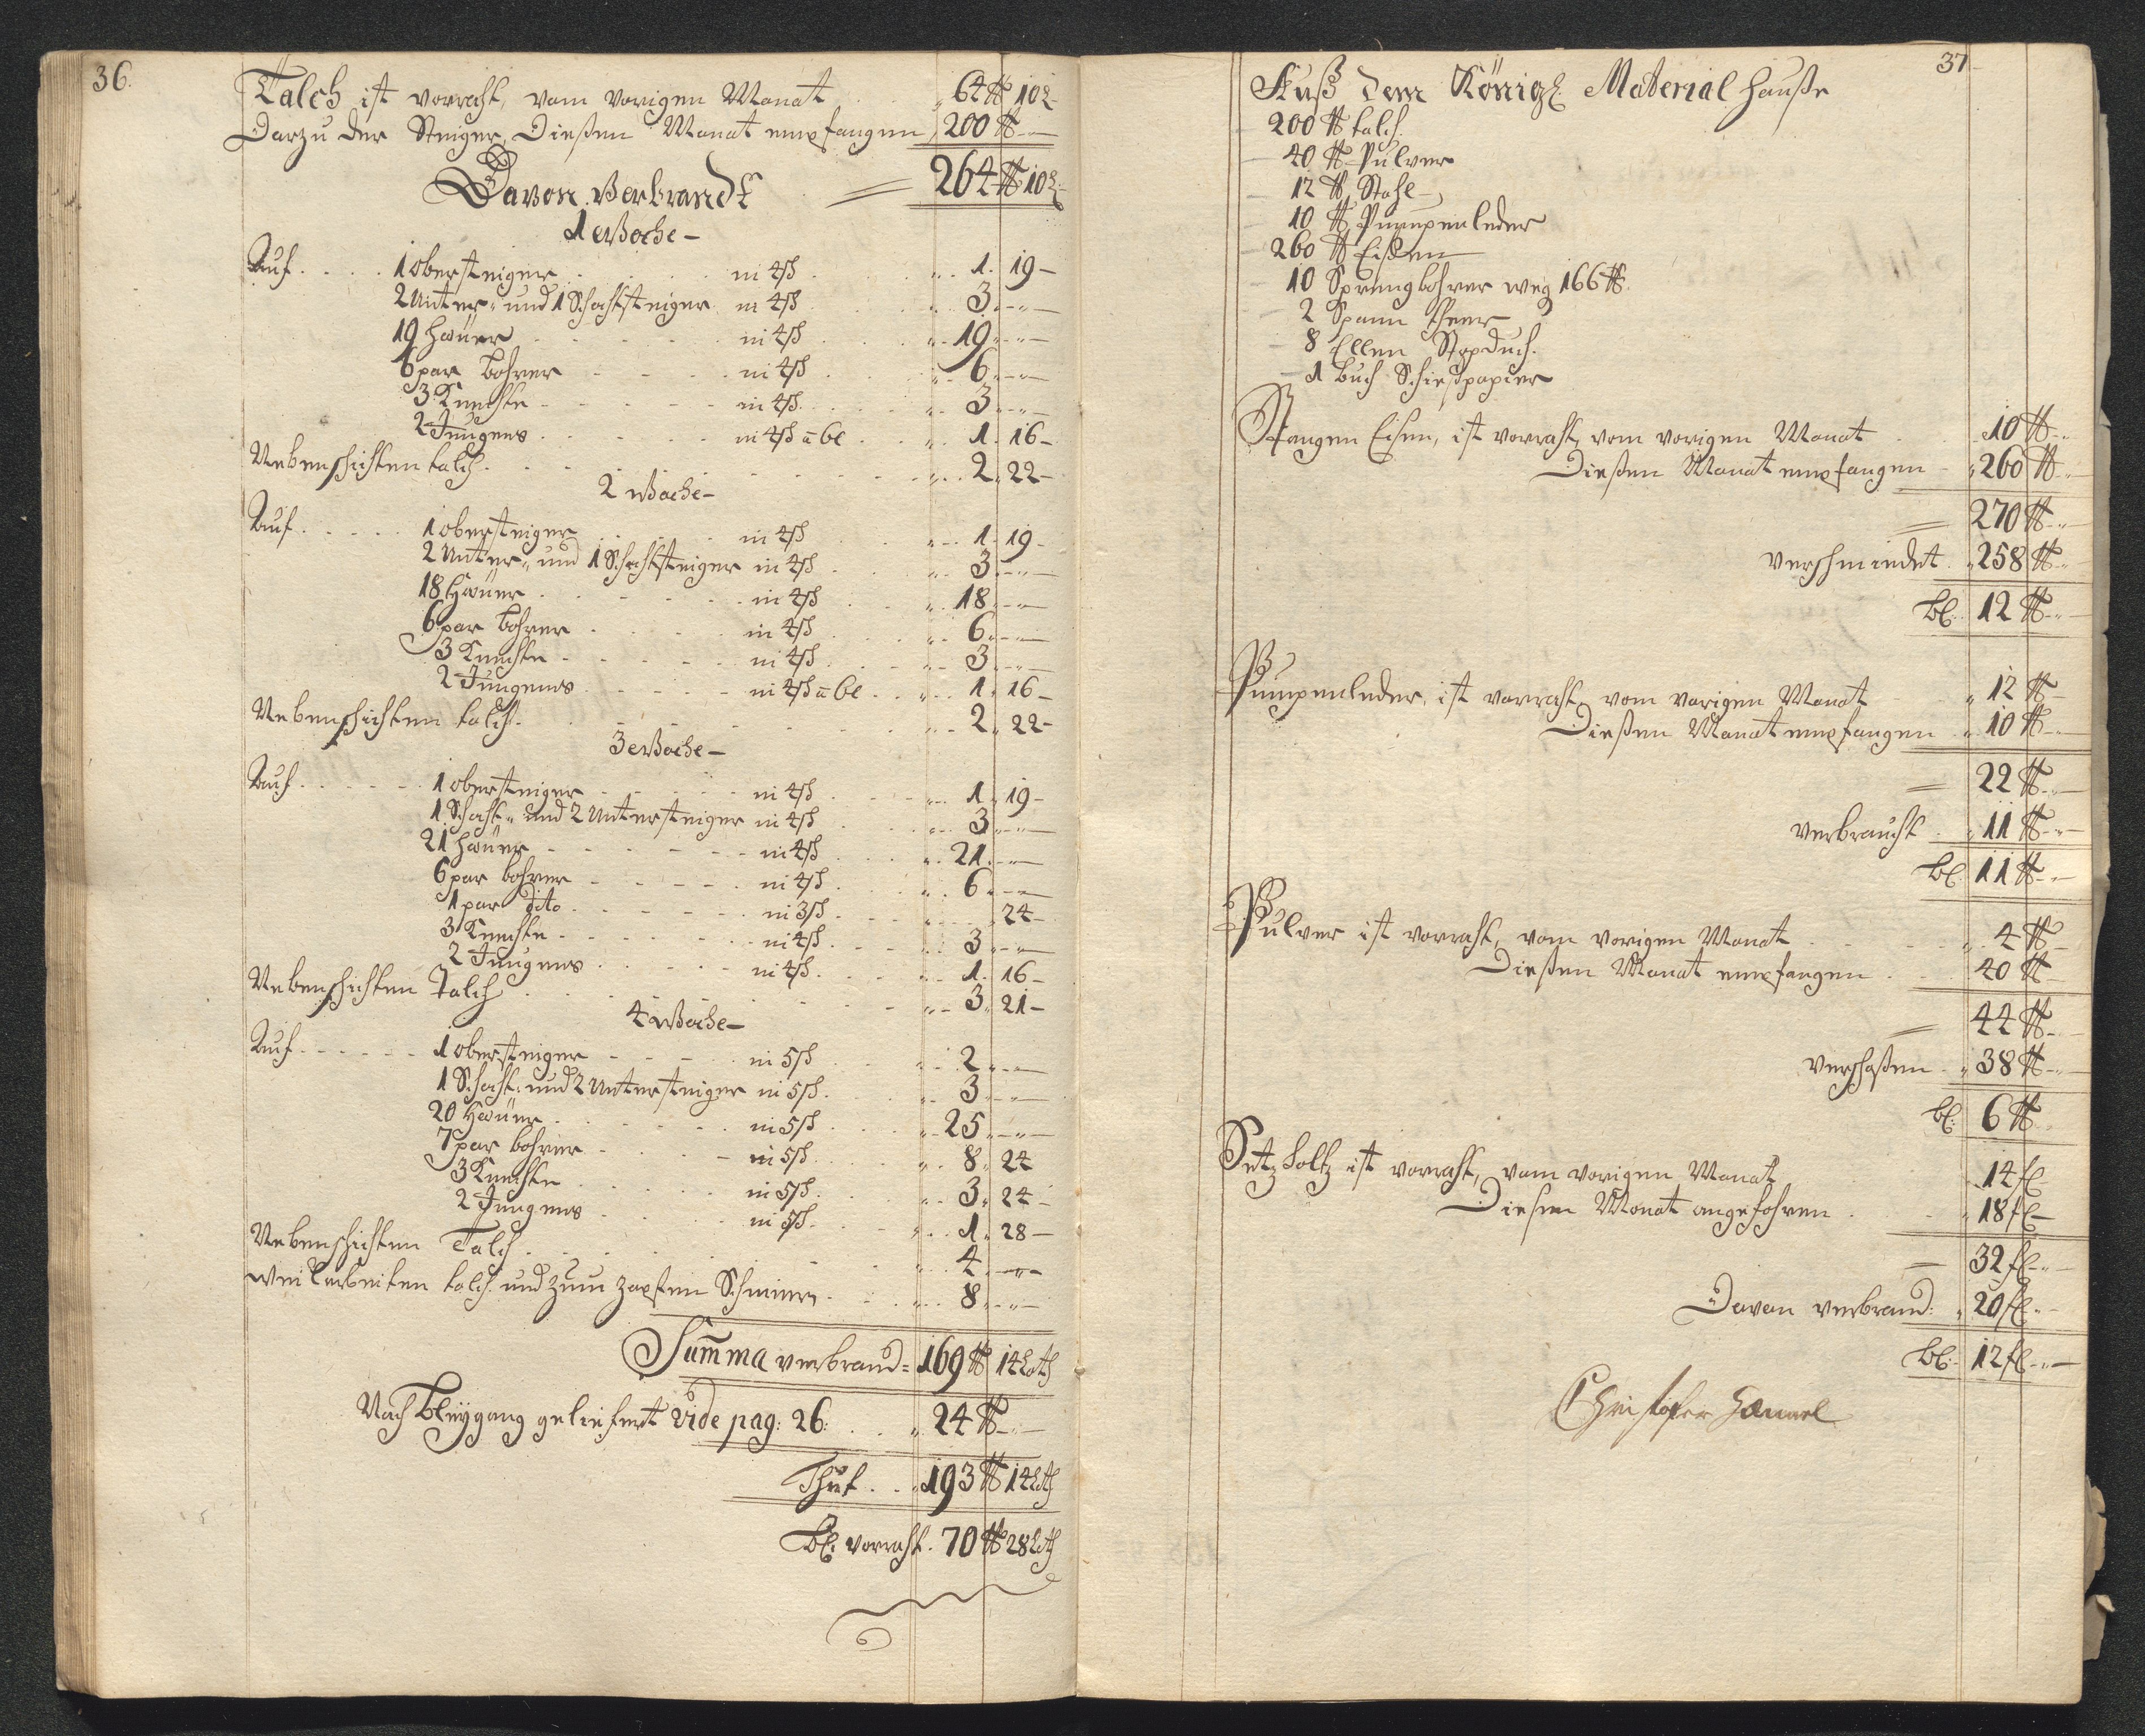 36.
Talch ist vorraht, vom vorigen Monat . . „ 64 ℔ 10 L
Darzu der Steiger, Dießen Monat empfangen „ 200 ℔ —
Davon Verbrandt = 264 ℔ 10 L
1 Woche —
Auf . . . . 1 obersteiger . . . in 4 ß . . . 1. 19 —
2 Unter- und 1 Schachtsteiger in 4 ß . . . 3. „ —
19 Häuer . . . in 4 ß . . . 19. „ —
6 par Bohrer . . . in 4 ß . . . 6. „ —
3 Knechte . . . in 4 ß . . . 3. „ —
2 Jungens . . . in 4 ß a be . . . 1. 16 —
Nebenschichten talch . . . 2. 22 —
2 Woche —
Auf . . . . 1 obersteiger . . . in 4 ß . . . 1. 19 —
2 Unter- und 1 Schachtsteiger in 4 ß . . . 3. „ —
18 Häuer . . . in 4 ß . . . 18. „ —
6 par Bohrer . . . in 4 ß . . . 6. „ —
3 Knechte . . . in 4 ß . . . 3. „ —
2 Jungens . . . in 4 ß a be . . . 1. 16 —
Nebenschichten talch . . . 2. 22 —
3 Woche —
Auf . . . . 1 obersteiger . . . in 4 ß . . . 1. 19 —
1 Schacht- und 2 Untersteiger in 4 ß . . . 3. „ —
21 Häuer . . . in 4 ß . . . 21. „ —
6 par bohrer . . . in 4 ß . . . 6. „ —
1 par dito . . . in 3 ß . . . „ 24 —
3 Knechte . . . in 4 ß . . . 3. „ —
2 Jungens . . . in 4 ß . . . 1. 16 —
Nebenschichten Talch . . . 3. 21 —
4 Woche —
Auf . . . . 1 obersteiger . . . in 5 ß . . . 2. „ —
1 Schacht- und 2 Untersteiger in 5 ß . . . 3. „ —
20 Häuer . . . in 5 ß . . . 25. „ —
7 par bohrer . . . in 5 ß . . . 8. 24
3 Knechte . . . in 5 ß . . . 3. 24 —
2 Jungens . . . in 5 ß . . . 1. 28 —
Nebenschichten Talch . . . 4. „ —
Weilarbeiten talch und zum zapfen Schmiern . . . 8. „ —
Summa verbrand = 169 ℔ 14 Loth
Nach Bleygang geliefert vide pag: 26: . . „ 24 ℔ —
Thut . . „ 193 ℔ 14 Loth
Bl. vorraht . 70 ℔ 28 Loth
37
Auß dem Königl Material Hauße
200 ℔ talch.
40 ℔ Pulver
12 ℔ Stahl
10 ℔ Pumpenleder
260 ℔ Eißen
10 Sprengbohrer weg 166 ℔.
2 Spann theer
8 Ellen Stopduch.
1 buch Schießpapier
Stangen Eisen, ist vorraht, vom vorigen Monat . 10 ℔ „
Dießen Monat empfangen „ 260 ℔ „
= 270 ℔ „
verschmiedet . „ 258 ℔ „
Bl. 12 ℔ „
Pumpenleder, ist vorraht, vom vorigen Monat „ 12 ℔ —
Dießen Monat empfangen „ 10 ℔ „
= 22 ℔ „
verbraucht . „ 11 ℔ „
Bl. 11 ℔ „
Pulver ist vorraht, vom vorigen Monat . . „ 4 ℔ —
Dießen Monat empfangen . . 40 ℔ —
= 44 ℔ „
verschoßen „ 38 ℔ „
bl. 6 ℔ „
Setz holtz ist vorraht, vom vorigen Monat . 14 fl —
Diesen Monat angefohren . . „ 18 fl —
= 32 fl „ —
Davon verbrand: „ 20 fl „ —
Bl: 12 fl „ —
Christofer